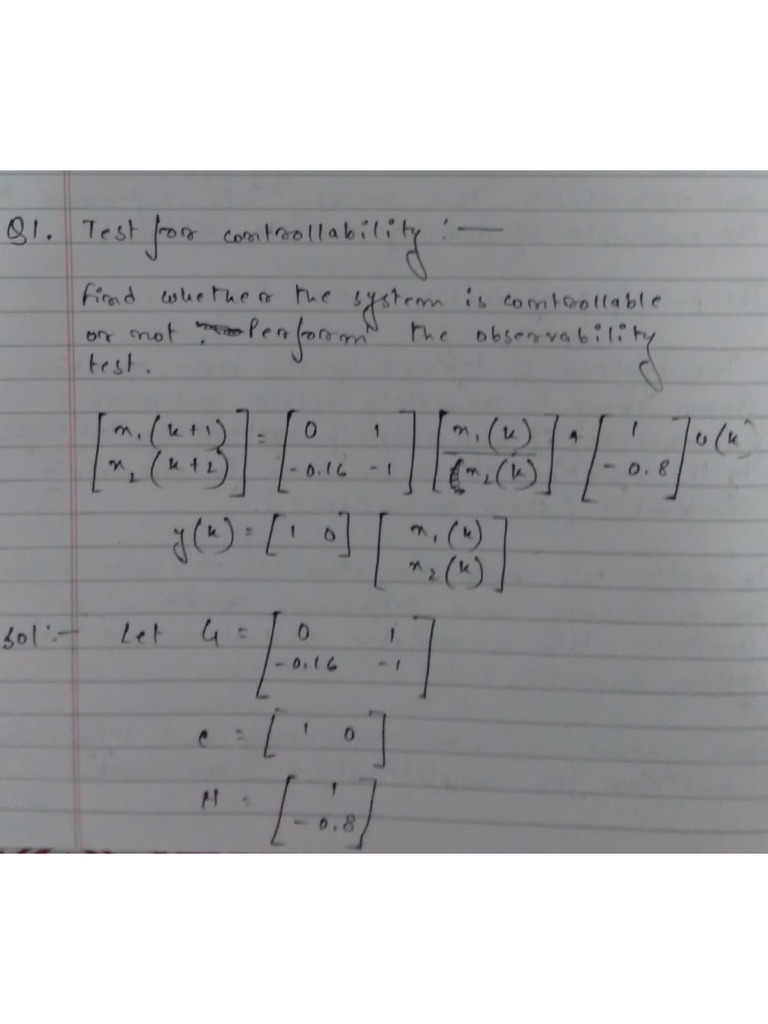 Q1. Test for controllability :—
find whether the system is controllable
or not. Perform the observability
test.
[x₁(k+1) x₂(k+2)] = [0 1 -0.16 -1] [x₁(k) x₂(k)] + [1 -0.8] u(k)
y(k) = [1 0] [x₁(k) x₂(k)]
sol:- Let G = [0 1 -0.16 -1]
c = [1 0]
H = [1 -0.8]